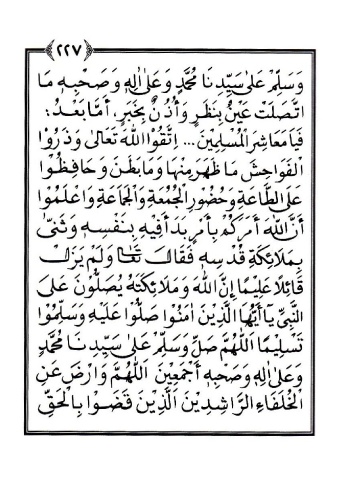 ٢٢٧
وَسَلِّمْ عَلَى سَيِّدِنَا مُحَمَّدٍ وَعَلَى اٰلِهٖ وَصَحْبِهٖ مَا
اتَّصَلَتْ عَيْنٌ بِنَظَرٍ وَأُذُنٌ بِخَبَرٍ، أَمَّا بَعْدُ :
فَيَامَعَاشِرَ الْمُسْلِمِيْنَ... اِتَّقُوْا اللهَ تَعَالَى وَذَرُوْا
الْفَوَاحِشَ مَا ظَهَرَ مِنْهَا وَمَا بَطَنَ وَحَافِظُوْا
عَلَى الطَّاعَةِ وَحُضُوْرِ الْجُمُعَةِ وَالْجَمَاعَةِ وَاعْلَمُوْا
أَنَّ اللهَ أَمَرَكُمْ بِأَمْرٍ بَدَأَ فِيْهِ بِنَفْسِهٖ وَثَنَّى
بِمَلَائِكَةِ قُدْسِهٖ فَقَالَ تَعَالَى وَلَمْ يَزَلْ
قَائِلًا عَلِيْمًا إِنَّ اللهَ وَمَلَائِكَتَهٗ يُصَلُّوْنَ عَلَى
النَّبِيِّ يٰٓأَيُّهَا الَّذِيْنَ اٰمَنُوْا صَلُّوْا عَلَيْهِ وَسَلِّمُوْا
تَسْلِيْمًا اَللّٰهُمَّ صَلِّ وَسَلِّمْ عَلَى سَيِّدِنَا مُحَمَّدٍ
وَعَلَى اٰلِهٖ وَصَحْبِهٖ أَجْمَعِيْنَ اَللّٰهُمَّ وَارْضَ عَنِ
الْخُلَفَاءِ الرَّاشِدِيْنَ الَّذِيْنَ قَضَوْا بِالْحَقِّ